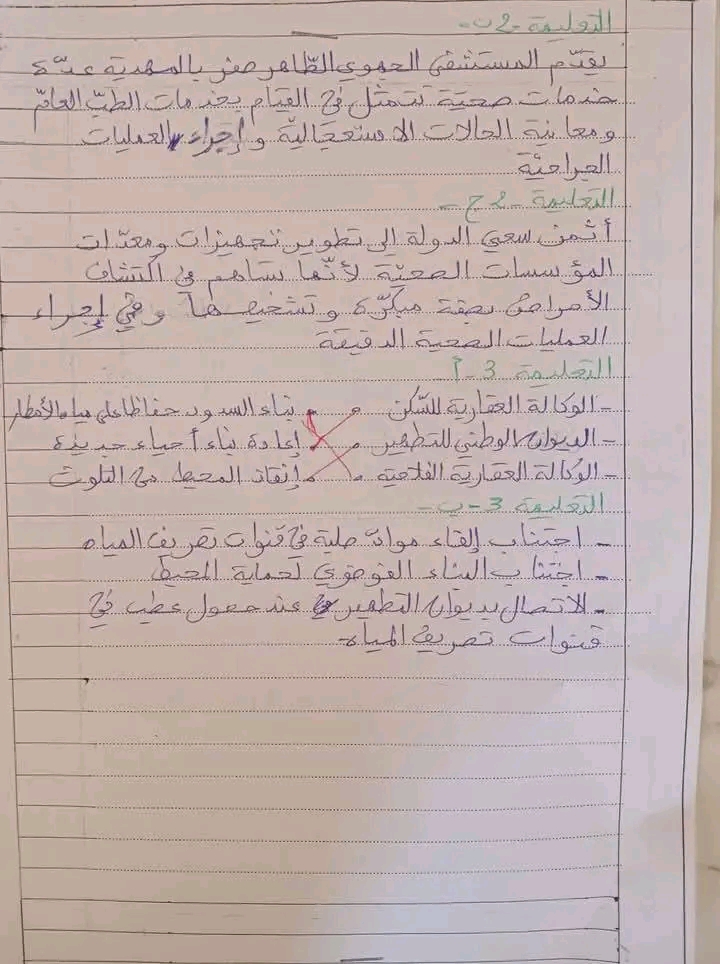 التعليمة -2 ب-
يقدّم المستشفى الجهوي الطّاهر صفر بالمهدية عدّة
خدمات صحيّة تتمثل في القيام بخدمات الطبّ العامّ
ومعاينة الحالات الاستعجاليّة وإجراء العمليات
الجراحيّة
التعليمة -2 ج-
أثمن سعي الدولة الى تطوير تجهيزات ومعدّات
المؤسسات الصحيّة لأنّها تساهم في اكتشاف
الأمراض بصفة مبكّرة وتشخيصها وفي إجراء
العمليات الصحية الدقيقة
التعليمة 3-أ-
- الوكالة العقارية للسّكن • • بناء السدود حفاظا على مياه الأمطار
- الديوان الوطني للتطهير • • إعادة بناء أحياء جديدة
- الوكالة العقارية الفلاحية • • إنقاذ المحيط من التلوث
التعليمة 3-ب-
- اجتناب إلقاء موادّ صلبة في قنوات تصريف المياه
- اجتناب البناء الفوضوي لحماية المحيط
- الاتصال بديوان التطهير عند حصول عطب في
قنوات تصريف المياه-